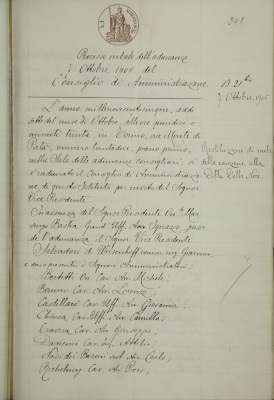 301
Processo verbale dell'adunanza
7 Ottobre 1905 del
Consiglio di Amministrazione
N. 21
7 Ottobre 1905
L'anno millenovecentocinque, addì
sette del mese di Ottobre, alle ore quindici e
minuti trenta, in Torino, via Monte di
Pietà, numero trentadue, piano primo,
nella Sala delle adunanze consigliari, si
è radunato il Consiglio di Amministrazio
ne di questo Istituto per invito del Signor
Vice Presidente.
della cauzione alla
Ditta Della Noce
In assenza del Signor Presidente On. Mar
Grand' Uff. Avv. Ignazio, pre
de l'adunanza il Signor Vice Presidente
Salvadori di Wiesenhoff comm. ing. Giacomo,
e sono presenti i Signori Amministratori:
Bertetti On. Cav. Avv. Michele;
Bonino Cav. Avv. Lorenzo;
Castellari Cav. Uff. Avv. Giovanni;
Chiesa Cav. Uff. Avv. Camillo;
Cav. Avv. Giuseppe;
Cav. Attilio;
Nasi dei Baroni Avv. Carlo;
Cav. Avv. Piero;